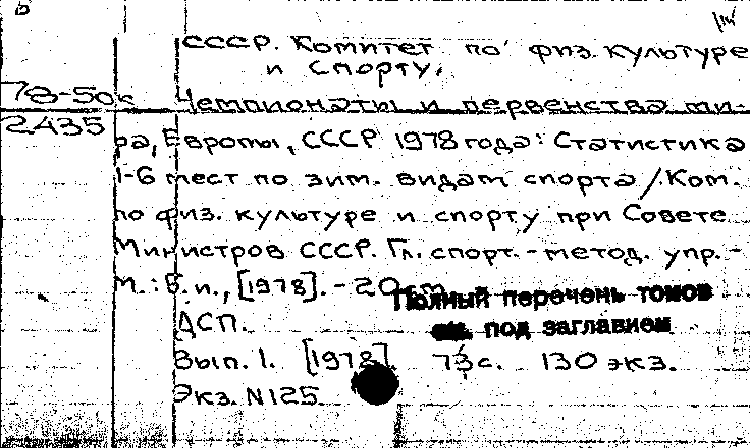 СССР. Комитет по физ. культуре
и спорту.
78-50к
Чемпионаты и первенства ми-
2435
ра, Европы, СССР 1978 года: Статистика
1-6 мест по зим. видам спорта / Ком.
по физ. культуре и спорту при Совете
Министров СССР. Гл. спорт.-метод. упр.-
М.: Б.и., [1978]. - 20 см.
Полный перечень томов
см. под заглавием
ДСП.
Вып. 1. [1978] 73 с. 130 экз.
Экз. N125.